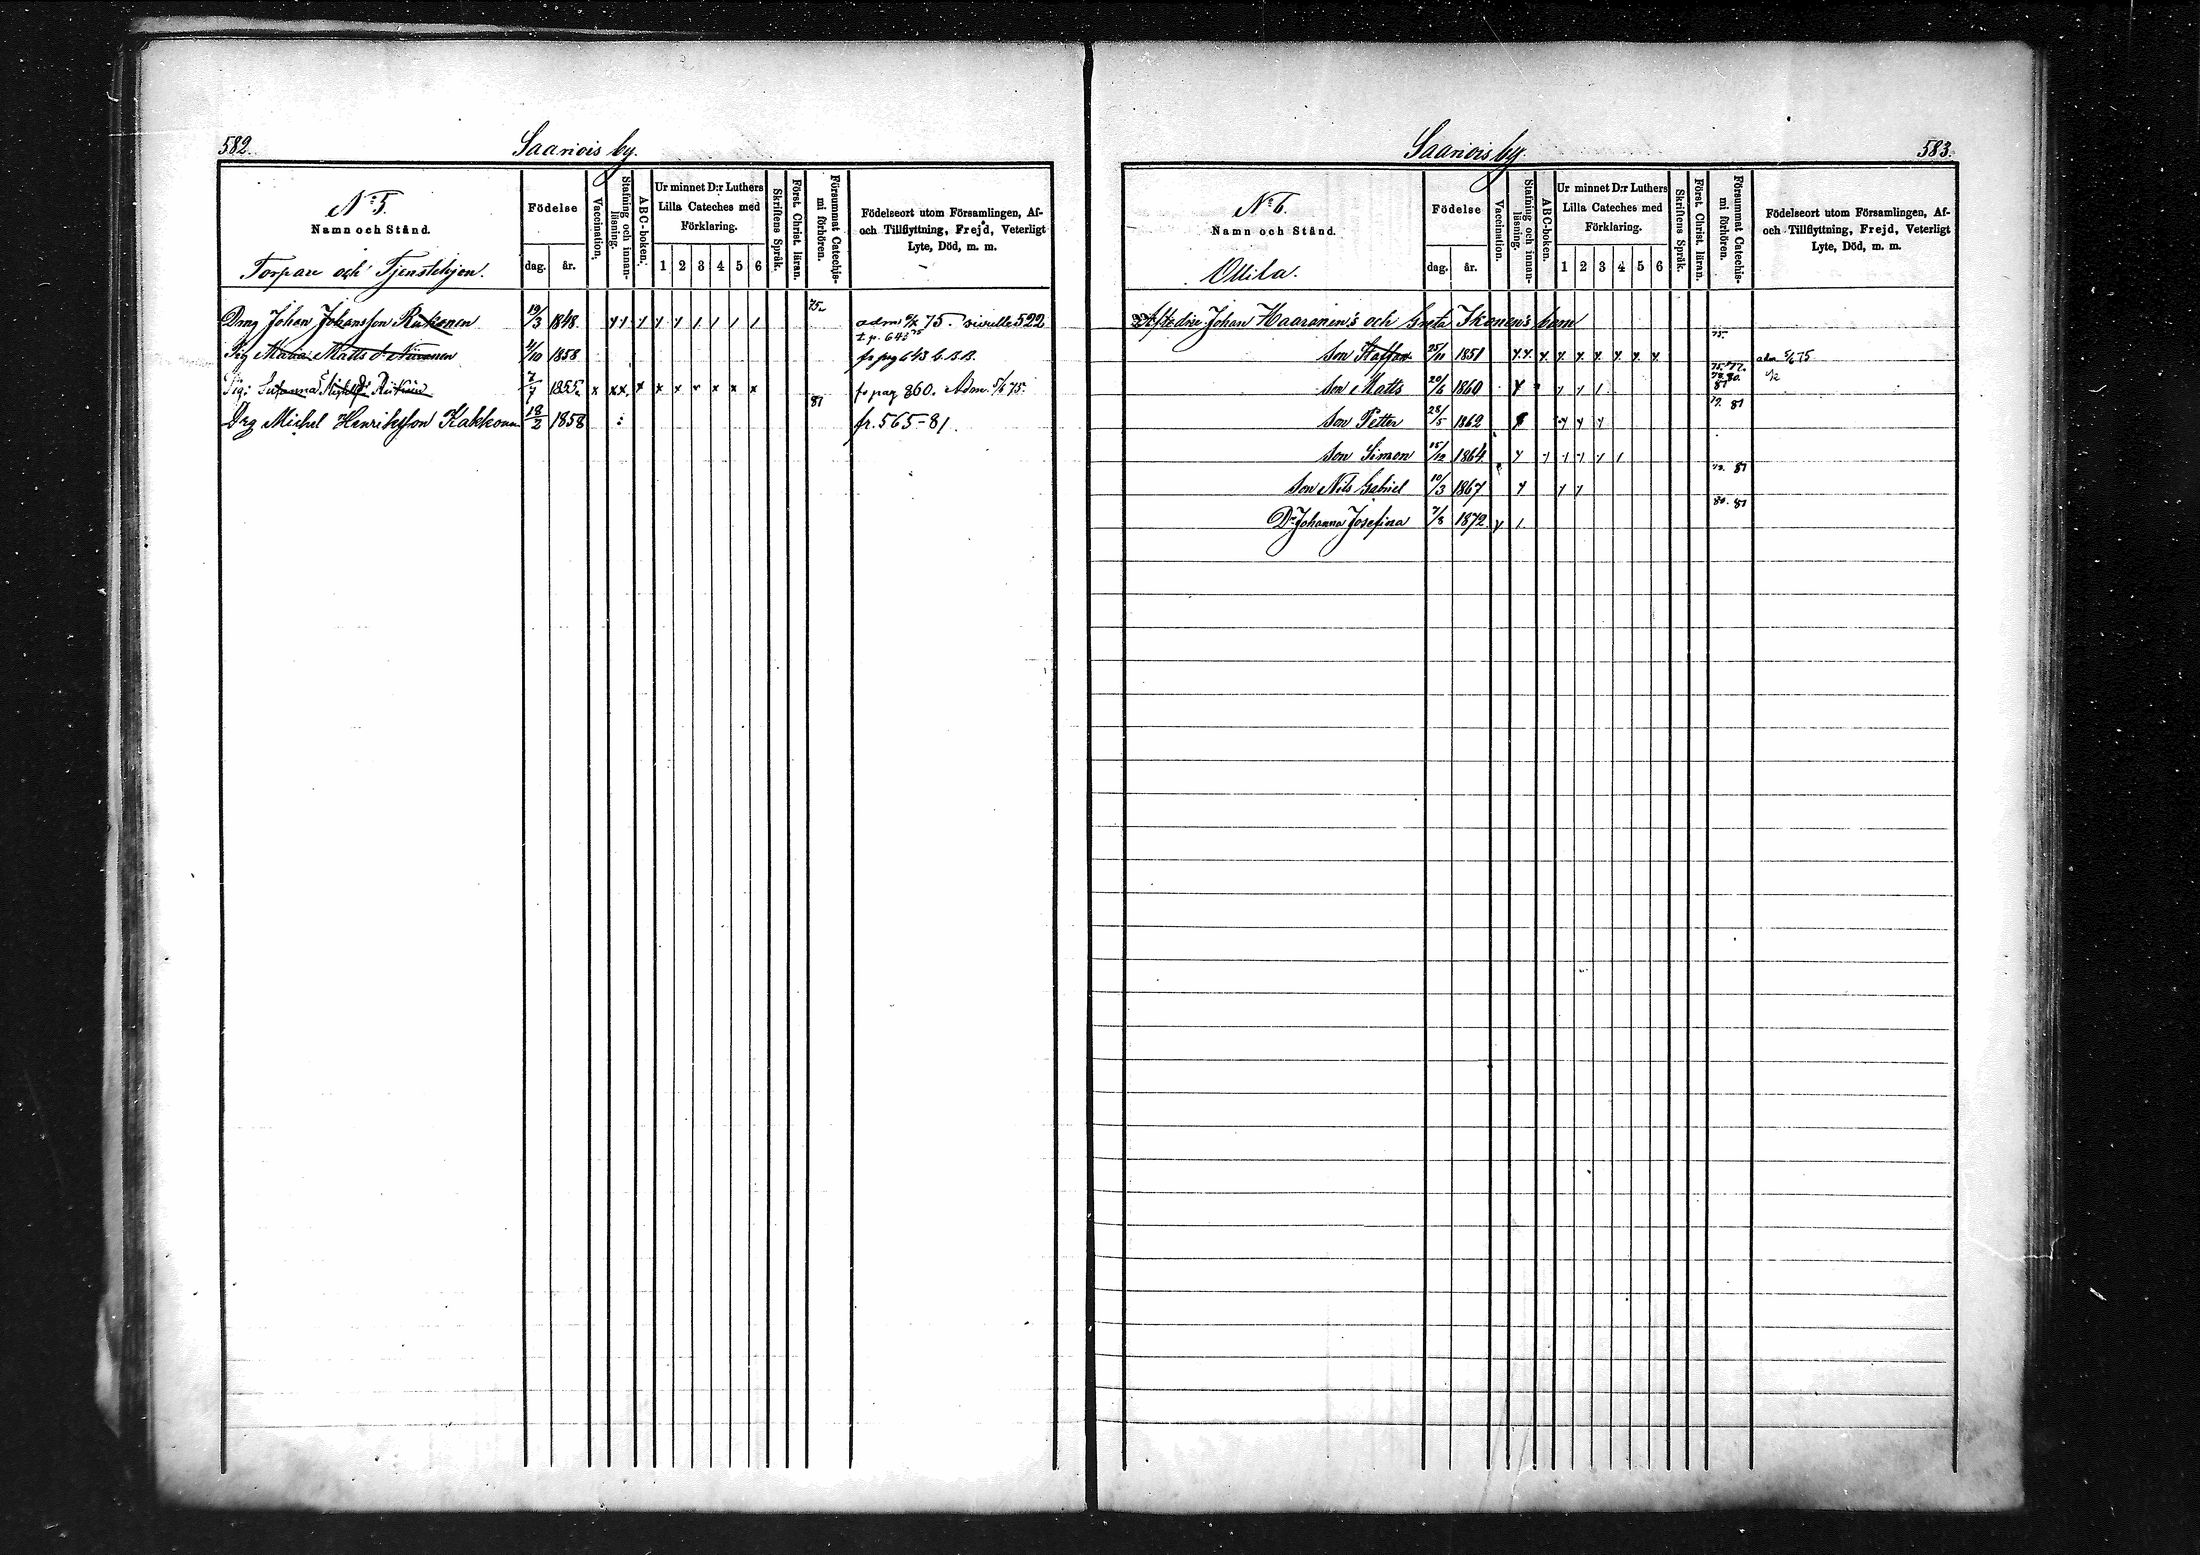 582.
Saariois by.
N:o 5.
Namn och Stånd.
Torpare och Tjenstehjon.
Födelse
dag. år.
Vaccination.
Stafning och innanläsning.
ABC-boken.
Ur minnet D:r Luthers Lilla Cateches med Förklaring.
1 2 3 4 5 6
Skriftens Språk.
Först. Christ. läran.
Försummat Catechismi förhören.
Födelseort utom Församlingen, Af- och Tillflyttning, Frejd, Veterligt Lyte, Död, m. m.
Drng Johan Johansson 19/3 1848 75. 75. 522
t p. 643 75
Pig Maria Matts d. Niironen /10 1858 fr pag 643
Pig: Susanna 7/7 1855 x x x x x x x x x x fr pag 360. Adm. 5/6 75.
Drg Michel Henriksson Kakkonen 18/2 1858 81 fr. 565-81.
Saariois by.
583.
N:o 6.
Namn och Stånd.
Ollila.
Födelse
dag. år.
Vaccination.
Stafning och innanläsning.
ABC-boken.
Ur minnet D:r Luthers Lilla Cateches med Förklaring.
1 2 3 4 5 6
Skriftens Språk.
Först. Christ. läran.
Försummat Catechismi förhören.
Födelseort utom Församlingen, Af- och Tillflyttning, Frejd, Veterligt Lyte, Död, m. m.
Johan Haaranen's och Greta Ikonen's barn
Son Staffan 25/11 1851 75. adm 5/6 75
Son Matts 20/6 1860 75. 77. 80. 81
Son Petter 28/5 1862 79. 81
Son Simon 15/12 1864
Son Nils Gabriel 10/3 1867 79. 81
Dr Johanna Josefina 7/8 1872 80. 81